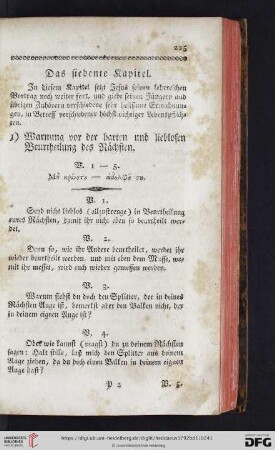 225
Das siebente Kapitel.
In diesem Kapitel setzt Jesus seinen lehrreichen
Vortrag noch weiter fort, und giebt seinen Jüngern und
übrigen Zuhörern verschiedene sehr heilsame Ermahnun-
gen, in Betreff verschiedener höchstwichtiger Lebenspflich-
ten.
1) Warnung vor der harten und lieblosen
Beurtheilung des Nächsten.
V. 1 — 5.
Μὴ κρίνετε —
V. 1.
Seyd nicht lieblos (allzustrenge) in Beurtheilung
eures Nächsten, damit ihr nicht eben so beurtheilt wer-
det.
V. 2.
Denn so, wie ihr Andere beurtheilet, werdet ihr
wieder beurtheilt werden, und mit eben dem Maße, wo-
mit ihr messet, wird euch wieder gemessen werden.
V. 3.
Warum siehst du doch den Splitter, der in deines
Nächsten Auge ist, bemerkst aber den Balken nicht, der
in deinem eignen Auge ist?
V. 4.
Oder wie kannst (magst) du zu deinem Nächsten
sagen: Halt stille, laß mich den Splitter aus deinem
Auge ziehen, da du doch einen Balken in deinem eignen
Auge hast?
P 2
V. 5.
UNIVERSITÄTS-
BIBLIOTHEK
HEIDELBERG
Gefördert durch die
DFG